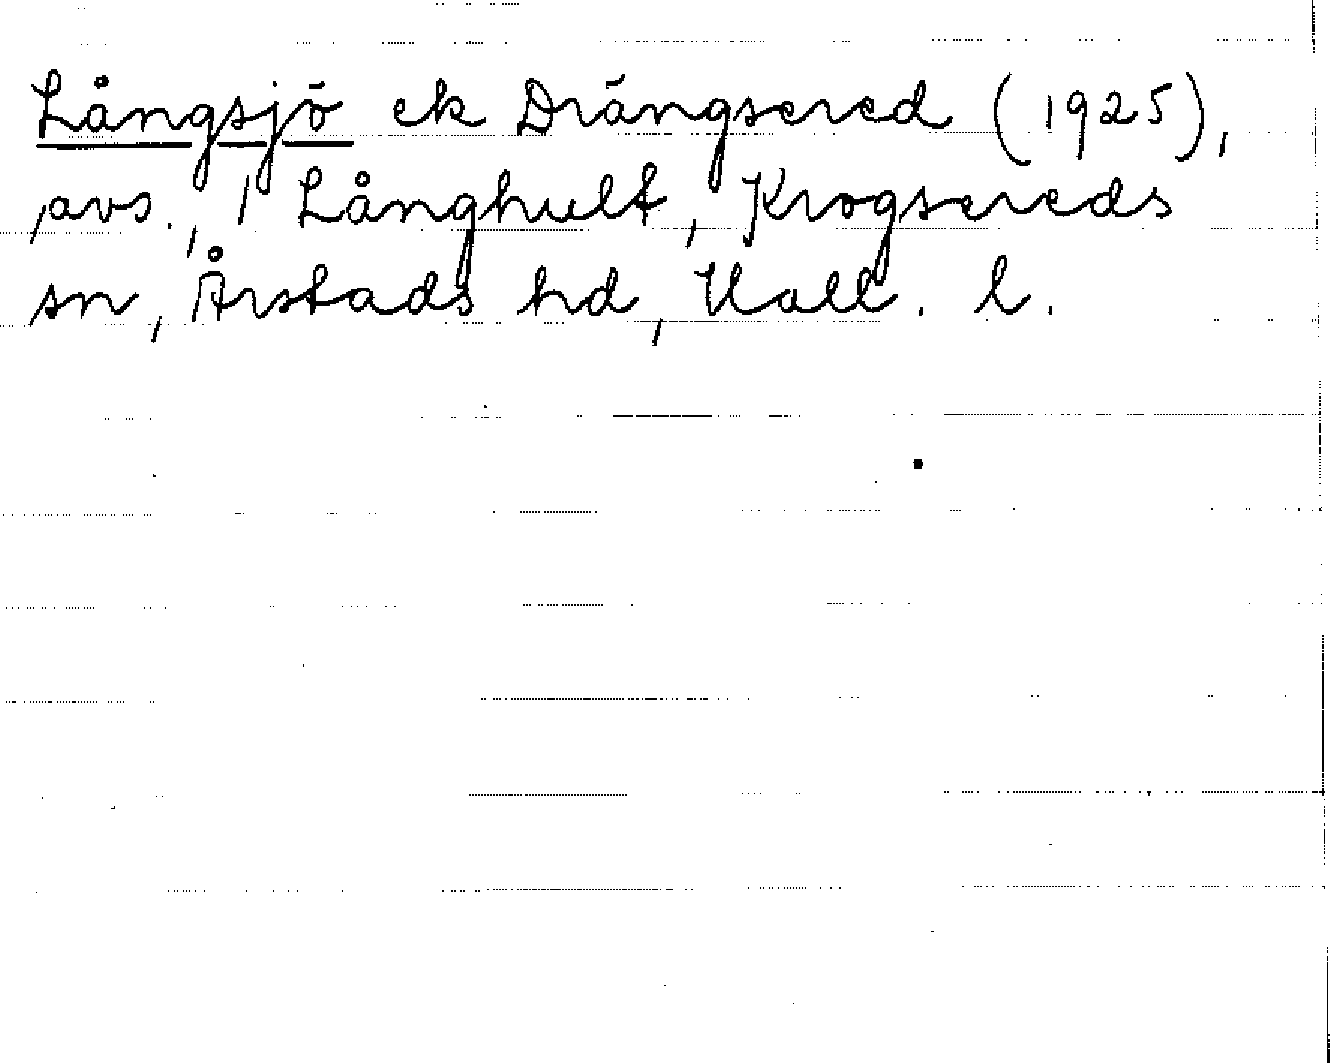 Långsjö ek Drängsered (1925),
avs., 1 Långhult, Krogsereds
sn, Årstads hd, Hall. l.